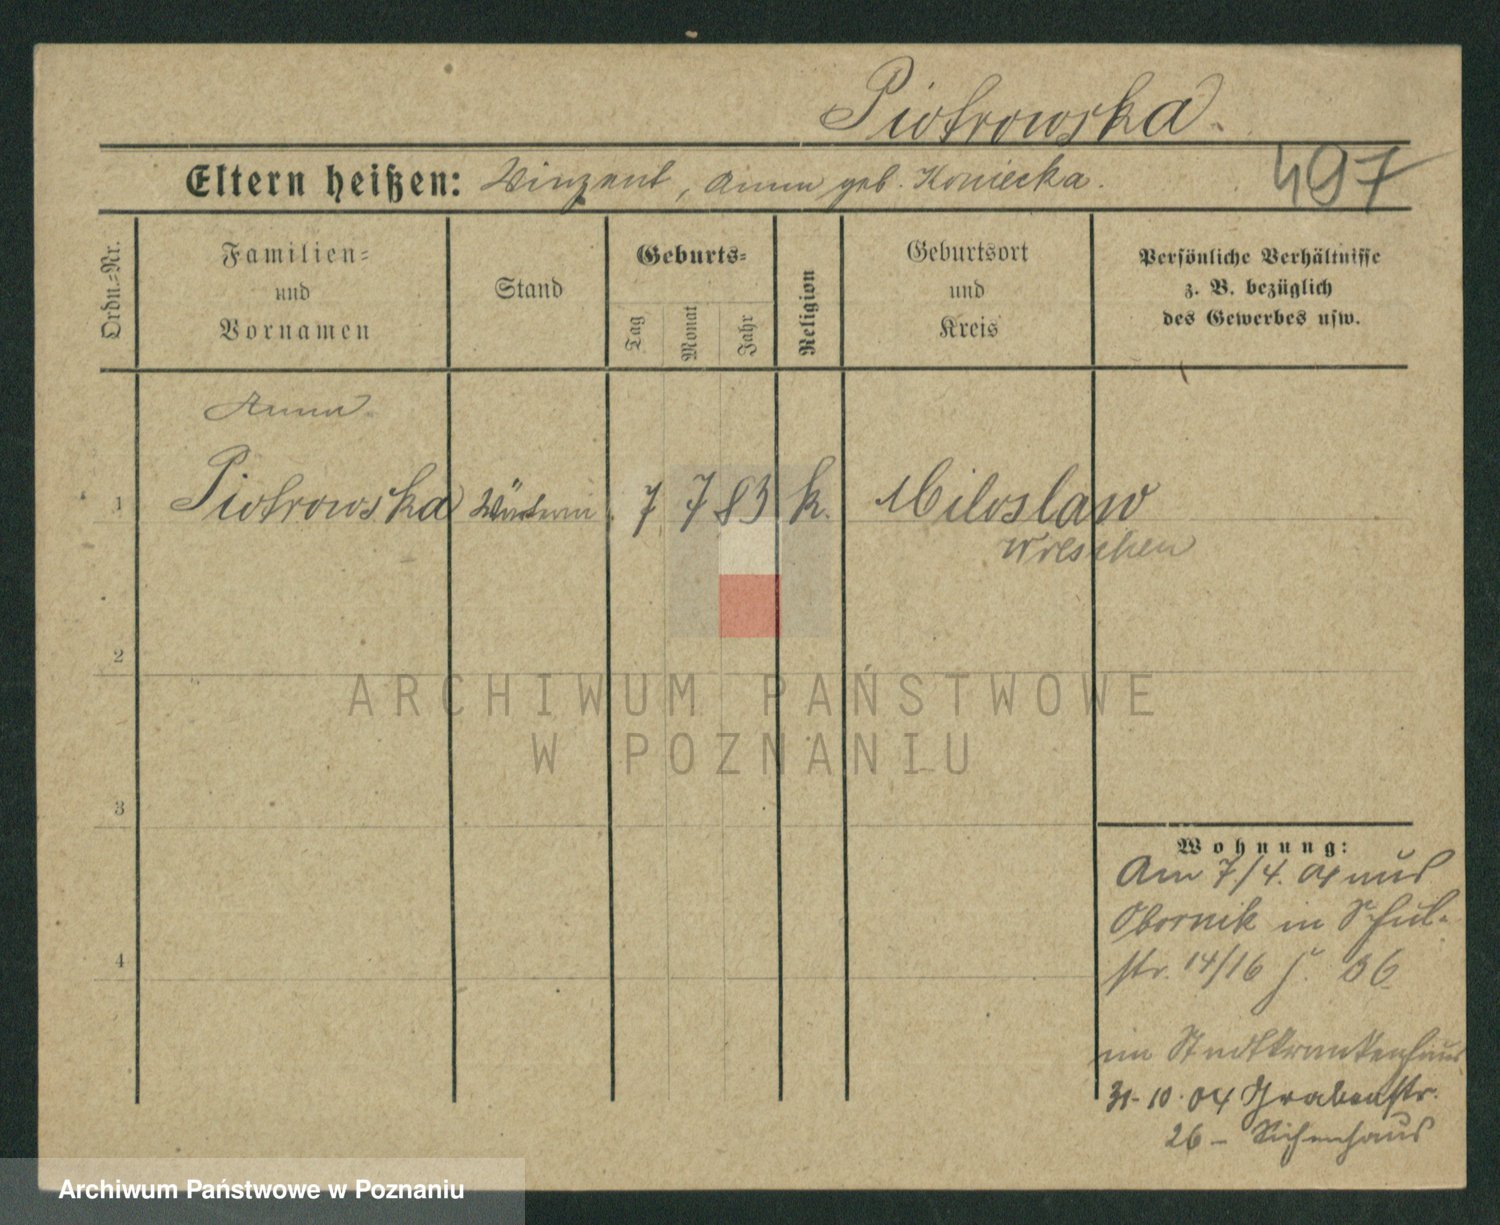 Piotrowska.
Eltern heißen: Vinzent, Anna geb. Koniecka.
497
Ordn.=Nr.
Familien=
und
Vornamen
Stand
Geburts=
Tag
Monat
Jahr
Religion
Geburtsort
und
Kreis
Persönliche Verhältnisse
z. B. bezüglich
des Gewerbes usw.
Anna
1 Piotrowska Wärterin 7 7 83 k. Miloslaw
Wreschen
2
3
4
Wohnung:
Am 7/4. 04 aus
Obornik in Schul-
str. 14/16 J. 36
im Stadtkrankenhaus
31-10-04 Grabenstr.
26 - Siechenhaus
ARCHIWUM PAŃSTWOWE
W POZNANIU
Archiwum Państwowe w Poznaniu